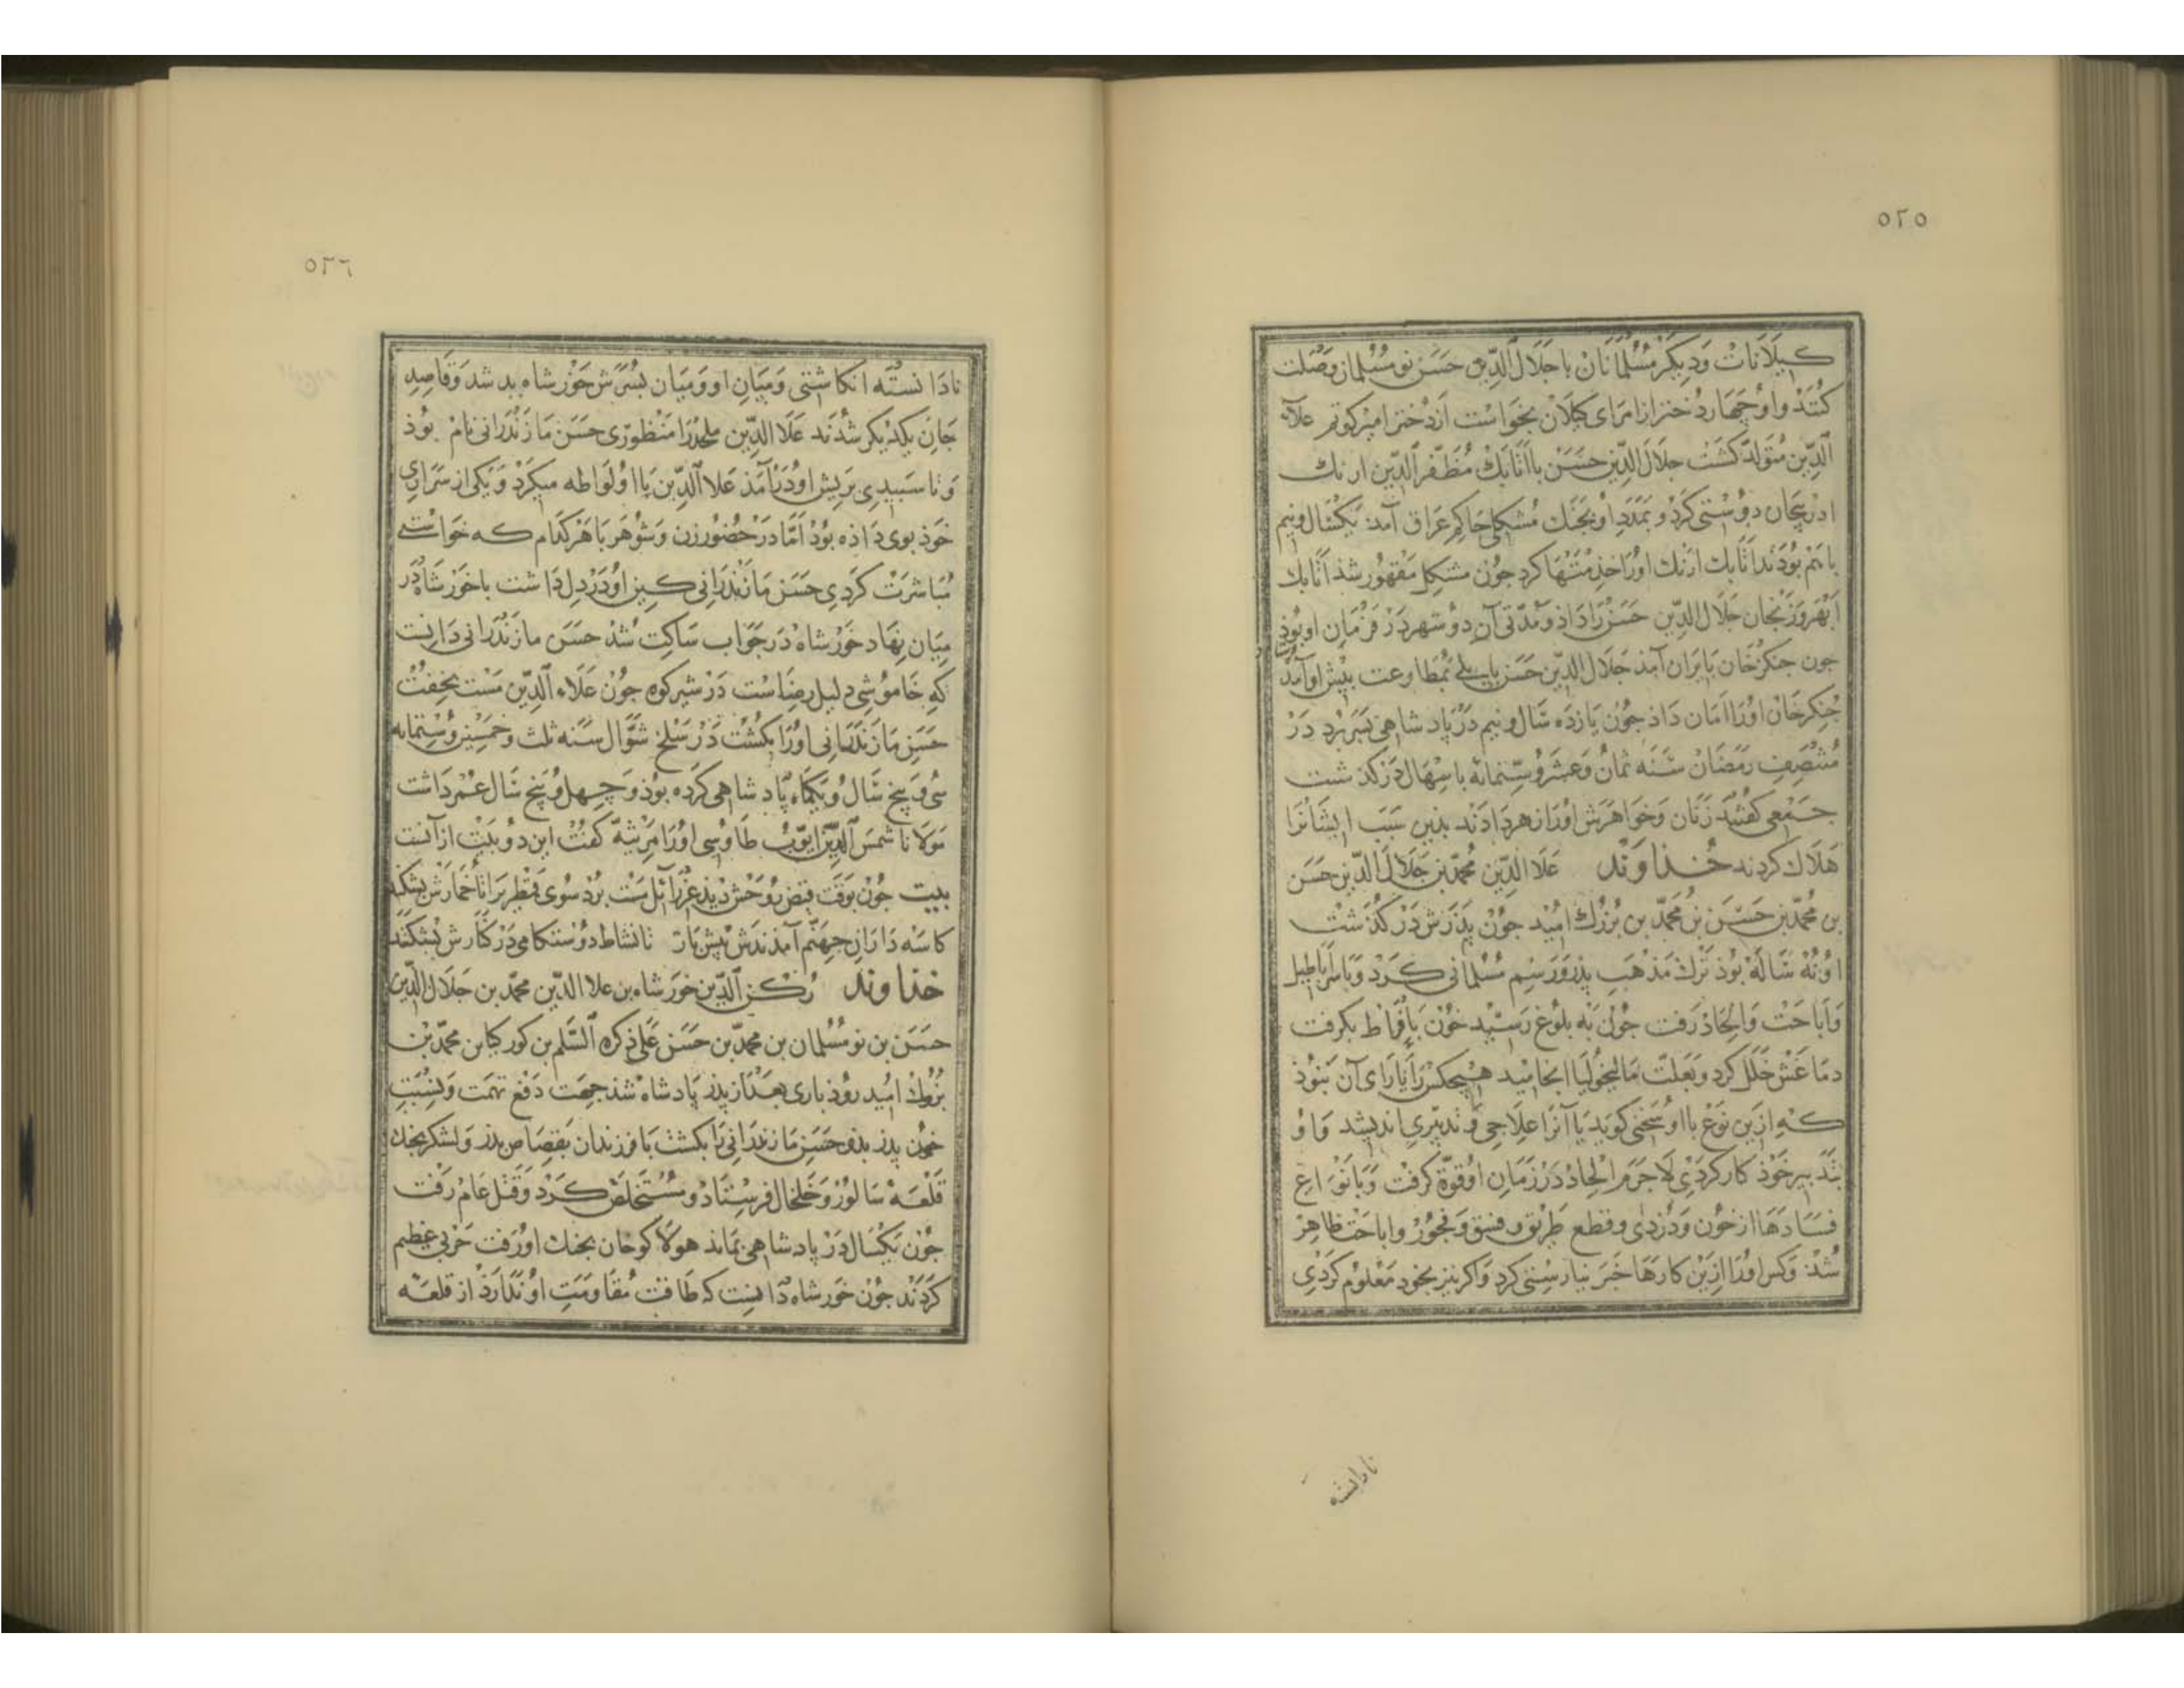 ٥٢٥
كیلانات ودیكر مسلمانان با جلال الدین حسن نو مسلمان وصلت
كنند واو چهار دختر از امرای كیلان بخواست از دختر امیر كوتم علاء
الدین متولد كشت جلال الدین حسن با اتابك مظفر الدین ازبك
اذربیجان دوستی كرد و بمدد او بجنك منكلی حاكم عراق آمد یكسال ونیم
باهم بودند اتابك ازبك اورا خذمتها كرد جون منكلی مقهور شذ اتابك
ابهر و زنجان جلال الدین حسن را داذ و مدتی آن دو شهر در فرمان او بوذ
جون جنكز خان بایران آمذ جلال الدین حسن بایلی بمطاوعت پیش او آمد
جنكز خان اورا امان داذ جون یازده سال ونیم در پادشاهی بسر برد در
منتصف رمضان سنه ثمان وعشر وستمائة باسهال در كذشت
جمعی كفتند زنان وخواهرش اورا زهر دادند بدین سبب ایشانرا
هلاك كردند خداوند علا الدین محمد بن جلال الدین حسن
بن محمد بن حسن بن محمد بن بزرك امید جون پذرش در كذشت
او نه ساله بوذ ترك مذهب پذر و رسم مسلمانی كرد و باسر اباطیل
و اباحت و الحاد رفت جون به بلوغ رسید خون بافراط بكرفت
دماغش خلل كرد وبعلت مالیخولیا انجامید هیچكس را یارای آن نبوذ
كه ازین نوع با او سخنی كوید یا آنرا علاجی و تدبیری اندیشد و او
بتدبیر خوذ كار كردی لاجرم الحاد در زمان او قوة كرفت و بانواع
فسادها از خون و دزدی وقطع طریق و فسق و فجور واباحت ظاهر
شذ وكس اورا ازین كارها خبر نیارستی كرد واكر نیز بخود معلوم كردی
نادانسته
٥٢٦
نادانسته انكاشتی ومیان او و میان پسرش خورشاه بد شد وقاصد
جان یكدیكر شدند علا الدین ملحد را منظوری حسن مازندرانی نام بوذ
وتا سپیدی بریش او درآمذ علا الدین با او لواطه میكرد و یكی از سراری
خوذ بوی داذه بوذ اما در حضور زن وشوهر با هر كدام كه خواستی
مباشرت كردی حسن مازندرانی كین او در دل داشت با خورشاه در
میان نهاد خورشاه در جواب ساكت شد حسن مازندرانی دانست
كه خاموشی دلیل رضاست در شیركوه جون علاء الدین مست بخفت
حسن مازندرانی اورا بكشت در سلخ شوال سنه ثلث وخمسین وستمایه
سی و پنج سال و یكماه پادشاهی كرده بوذ و چهل و پنج سال عمر داشت
مولانا شمس الدین ایوب طاوسی اورا مرثیه كفت این دو بیت از آنست
بیت جون بوقت قبض روحش دیذ عزرائیل مست برد سوی قطربرا تا خمارش بشكند
كاسه داران جهنم آمذندش پیش باز تا نشاط دوستكامی در كنارش بشكند
خذاوند ركن الدین خورشاه بن علا الدین محمد بن جلال الدین
حسن بن نو مسلمان بن محمد بن حسن علی ذكره السلم بن كور كیا بن محمد بن
بزرك امید روذباری بعد از پذر پادشاه شذ جهت دفع تهمت ونسبت
خون پدر بذو حسن مازندرانی را بكشت با فرزندان بقصاص پدر ولشكر بجنك
قلعه شالوز وخلخال فرستاد و مستخلص كرد وقتل عام رفت
جون یكسال در پادشاهی بماند هولاكو خان بجنك او رفت حربی عظیم
كردند جون خورشاه دانست كه طاقت مقاومت او ندارذ از قلعه